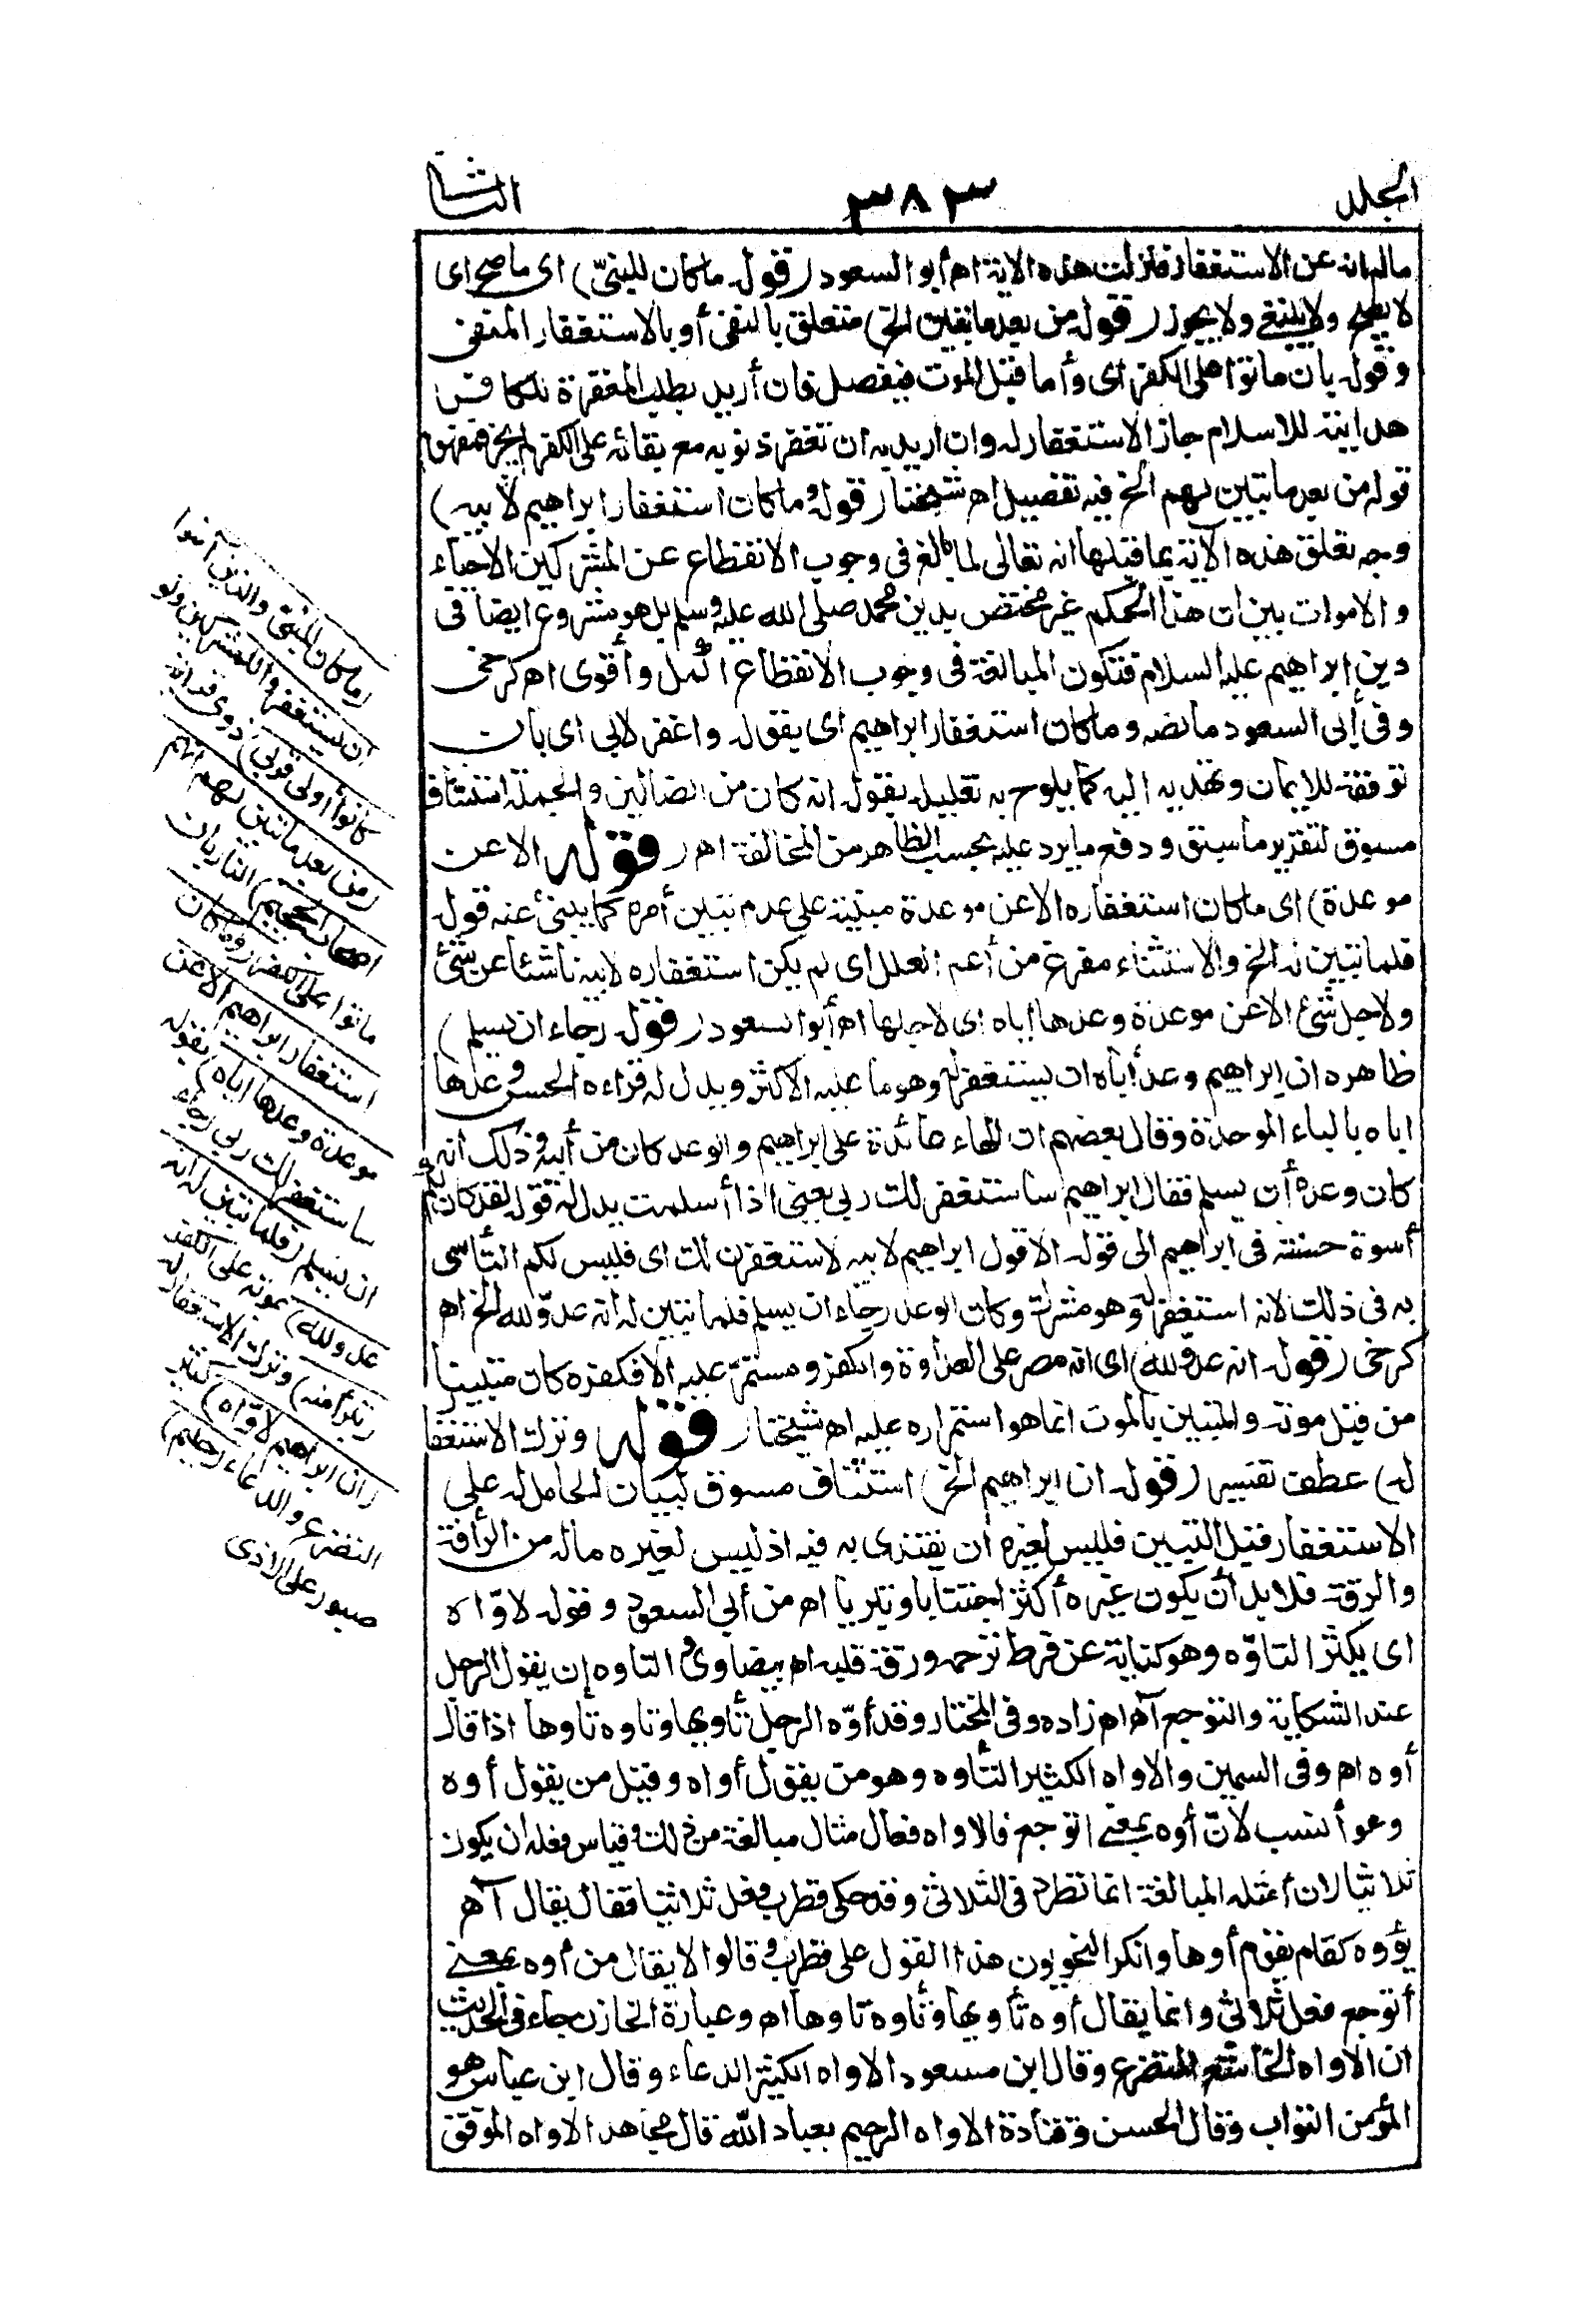 المجلد
٣٨٣
الثانى
مالم انه عن الاستغفار فنزلت هذه الاية اه أبو السعود (قوله ما كان للنبىّ) اى ما صح اى
لا يصح ولا ينبغى ولا يجوز (قوله من بعد ما تبين الخ) متعلق بالنفى أو بالاستغفار المنفى
وقوله بان ماتوا على الكفر اى وأما قبل الموت فيفصل فان أريد بطلب المغفرة للكافر
هدايته للاسلام جاز الاستغفار له وان اريد به ان تغفر ذنوبه مع بقائه على الكفر لم يجز فمفهوم
قوله من بعد ما تبين لهم الخ فيه تفصيل اه شيخنا (قوله وما كان استغفار ابراهيم لابيه)
وجه تعلق هذه الآية بما قبلها انه تعالى لما بالغ فى وجوب الانقطاع عن المشركين الاحياء
والاموات بين ان هذا الحكم غير مختص بدين محمد صلى الله عليه وسلم بل هو مشروع ايضا فى
دين ابراهيم عليه السلام فتكون المبالغة فى وجوب الانقطاع اكمل وأقوى اه كرخى
وفى أبى السعود ما نصه وما كان استغفار ابراهيم اى بقوله واغفر لابى اى بان
توفقه للايمان وتهديه اليه كما يلوح به تعليله بقوله انه كان من الضالين والجملة استئناف
مسوق لتقرير ما سبق ودفع ما يرد عليه بحسب الظاهر من المخالفة اه (قوله الا عن
موعدة) اى ما كان استغفاره الا عن موعدة مبنية على عدم تبين أمره كما ينبئ عنه قوله
فلما تبين له الخ والاستثناء مفرغ من أعم العلل اى لم يكن استغفاره لابيه ناشئا عن شئ
ولاجل شئ الا عن موعدة وعدها اياه اى لاجلها اه أبو السعود (قوله رجاء ان يسلم)
ظاهره ان ابراهيم وعد أباه ان يستغفر له وهو ما عليه الاكثر ويدل له قراءه الحسن وعدها
اباه بالباء الموحدة وقال بعضهم ان الهاء عائدة على ابراهيم والوعد كان من أبيه وذلك انه
كان وعده أن يسلم فقال ابراهيم سأستغفر لك ربى يعنى اذا أسلمت يدل له قوله لقد كان لكم
أسوة حسنة فى ابراهيم الى قوله الا قول ابراهيم لابيه لاستغفرن لك اى فليس لكم التأسى
به فى ذلك لانه استغفر له وهو مشرك وكان الوعد رجاء ان يسلم فلما تبين له انه عدوّ لله الخ اه
كرخى (قوله انه عدوّ لله) اى انه مصر على العداوة والكفر ومستمرّ عليه الا فكفره كان متبينا
من قبل موته والمتبين بالموت انما هو استمراره عليه اه شيخنا (قوله وترك الاستغفار
له) عطف تفسير (قوله ان ابراهيم الخ) استئناف مسوق لبيان الحامل له على
الاستغفار قبل التبيين فليس لغيره أن يقتدى به فيه اذ ليس لغيره ماله من الرأفة
والرقة فلا بد أن يكون غيره أكثر اجتنابا وتبريا اه من أبى السعود وقوله لاوّاه
اى يكثر التاوّه وهو كناية عن فرط ترحمه ورقة قلبه اه بيضاوى و التاوه إن يقول الرجل
عند الشكاية والتوجع آه اه زاده وفى المختار وقد أوّه الرجل تأويها وتاوه تأوها اذا قال
أوه اه وفى السمين والاواه الكثير التأوه وهو من يقول أواه وقيل من يقول أوه
وهو أنسب لانّ أوه بمعنى اتوجع فالاواه فعال مثال مبالغة من ذلك وقياس فعله ان يكون
ثلاثيا لان أمثله المبالغة انما تطرد فى الثلاثى وقد حكى قطرب فعل ثلاثيا فقال يقال آه
يؤوه كقام يقوم أوها وانكر النحويون هذا القول على قطرب و قالوا لا يقال من أوه بمعنى
أتوجع فعل ثلاثى وانما يقال أوه تأويها وتأوه تأوها اه وعبارة الخازن جاء فى الحديث
ان الاواه الخاشع المتضرع وقال ابن مسعود الاواه الكثير الدعاء وقال ابن عباس هو
المؤمن التواب وقال الحسن وقتادة الاواه الرحيم بعباد الله قال مجاهد الاواه الموقن
(ما كان للنبى والذين آمنوا
ان يستغفروا للمشركين ولو
كانوا أولى قربى) ذوى قرابة
(من بعد ما تبين لهم انهم
اصحاب الجحيم) النار بان
ماتوا على الكفر (وما كان
استغفار ابراهيم الا عن
موعدة وعدها اياه) بقوله
سأستغفر لك ربى رجاء
ان يسلم (فلما تبين له انه
عدو لله) بموته على الكفر
(تبرأ منه) وترك الاستغفار له
(ان ابراهيم لاوّاه) كثير
التضرع والدعاء (حليم)
صبور على الاذى